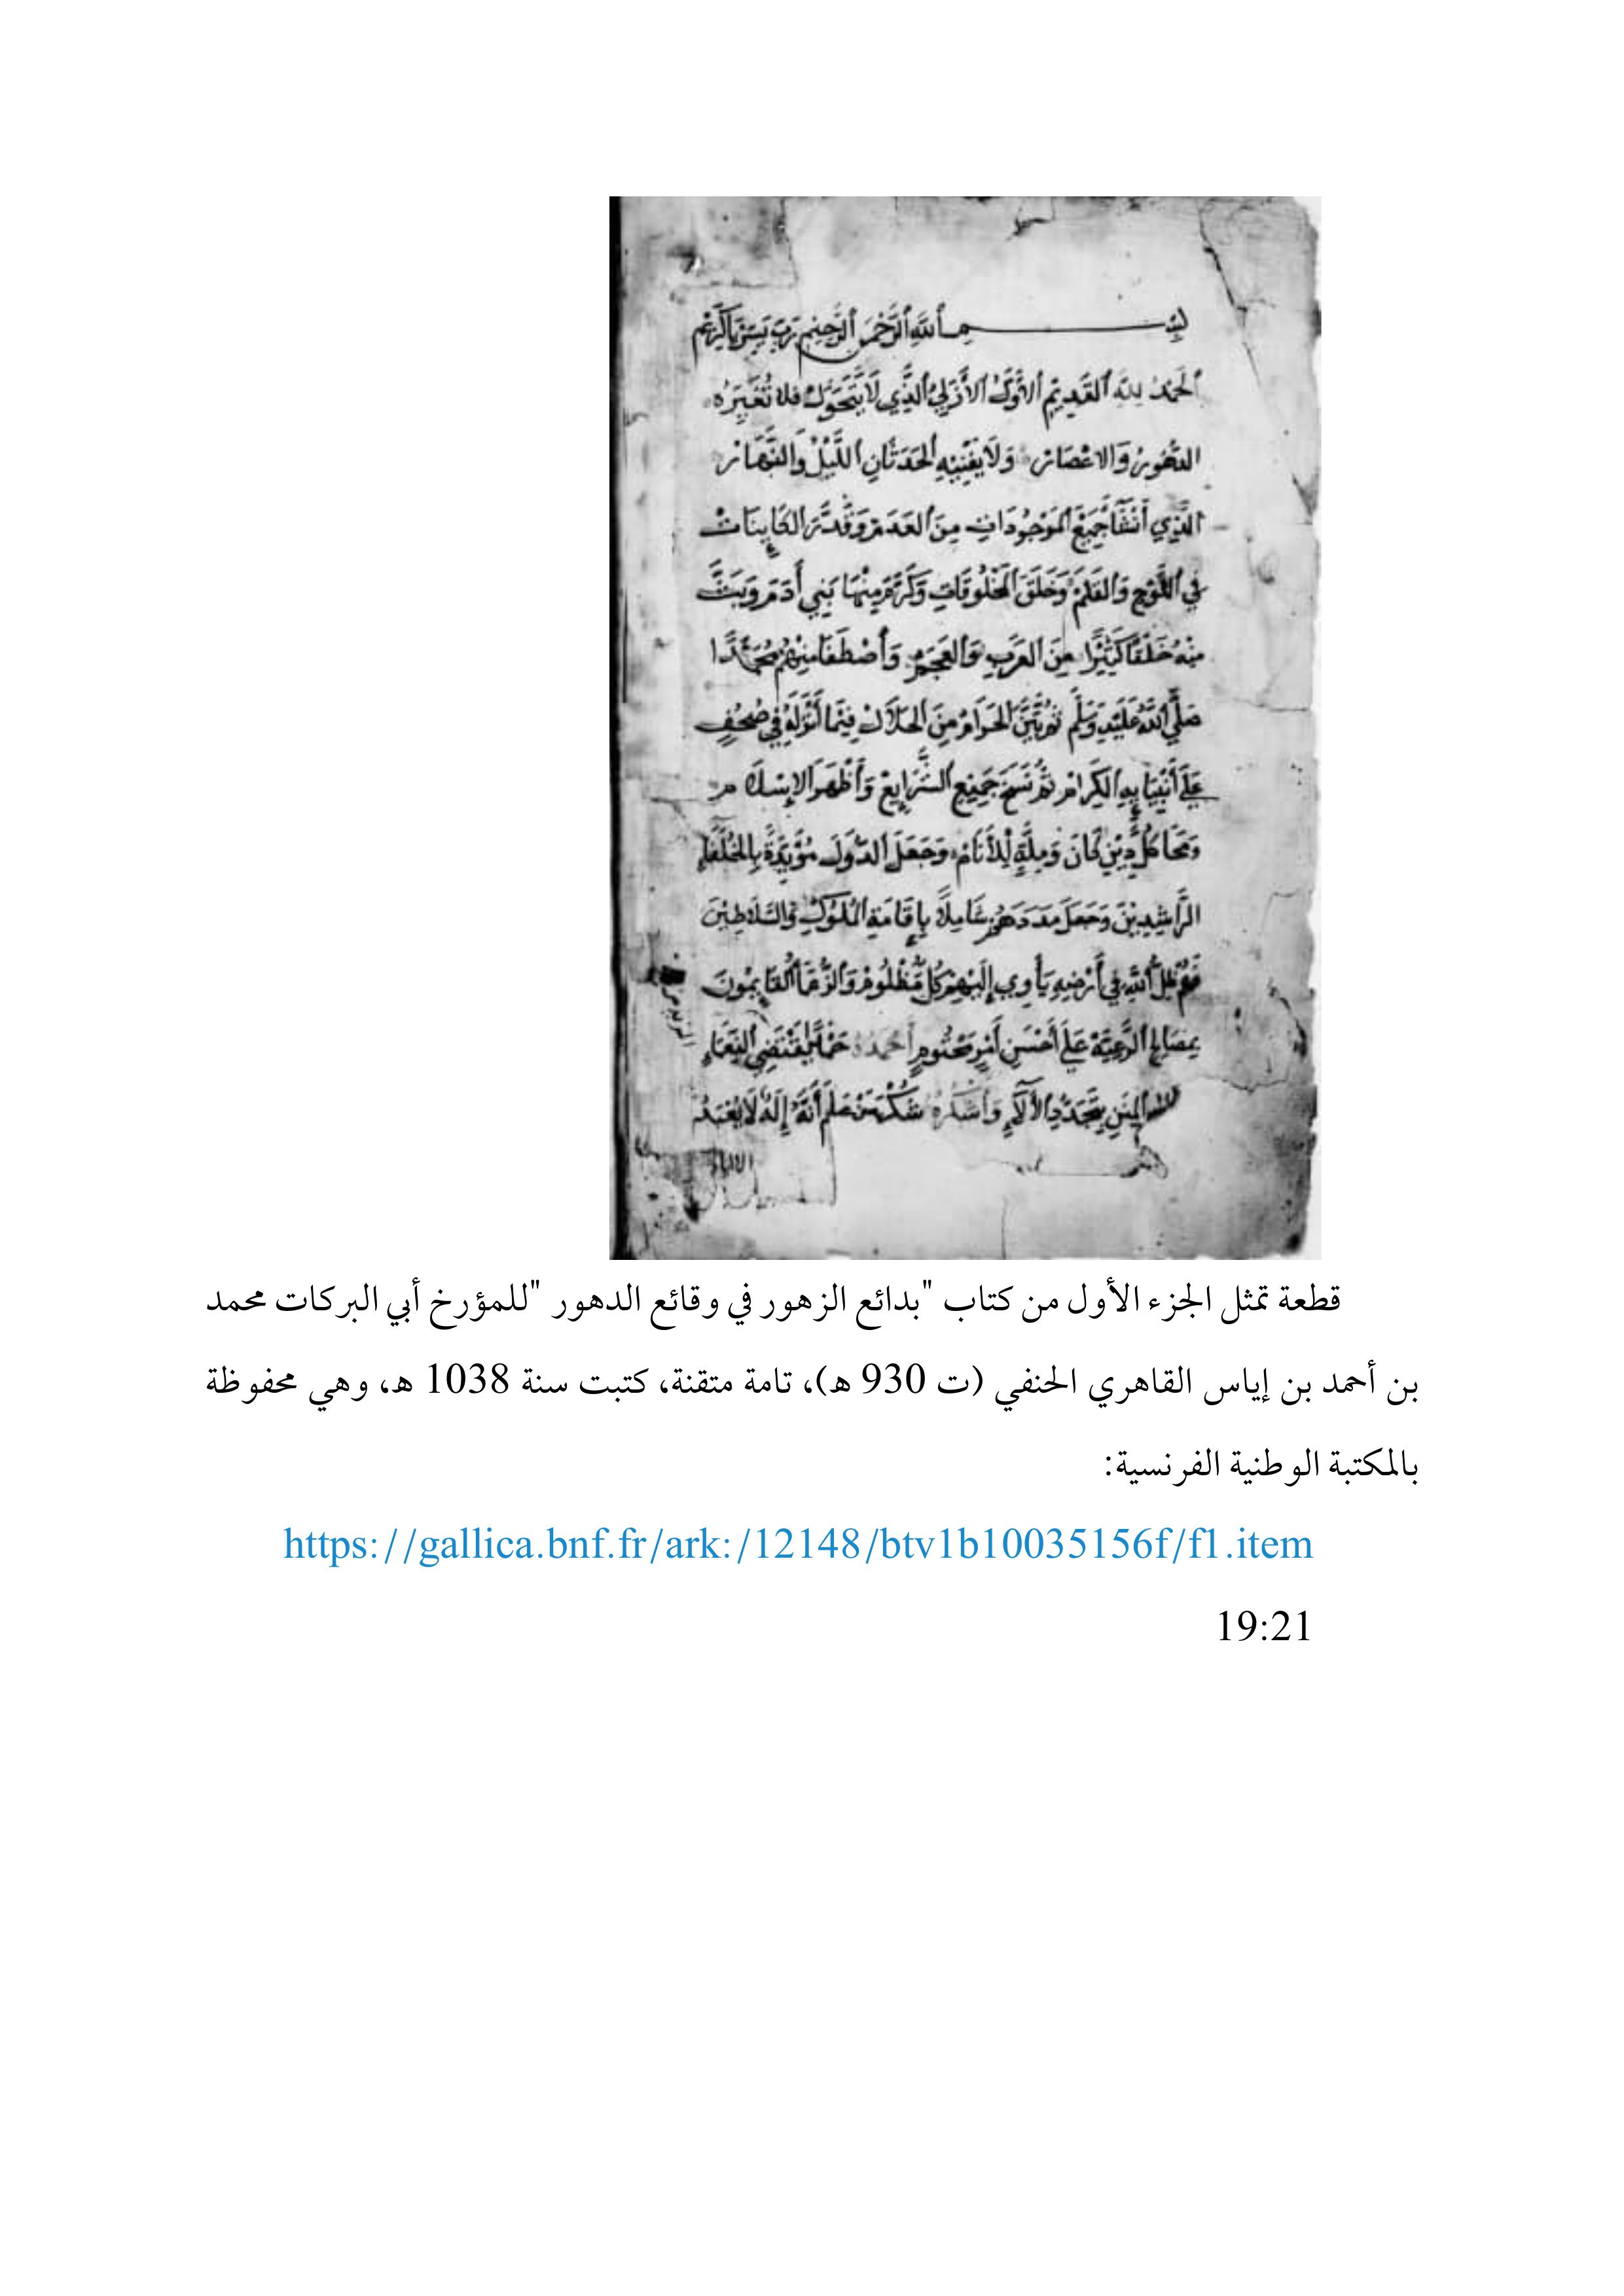 بِسْمِ ٱللَّهِ ٱلرَّحْمَنِ ٱلرَّحِيمِ رَبِّ يَسِّرْ يَا كَرِيْم
ٱلْحَمْدُ لِلَّهِ ٱلقَدِيْمِ ٱلأَوَّلْ ٱلأَزَلِيُ ٱلَّذِي لَا يَتَحَوَّلْ فَلَا تُغَيِّرُهُ
الدُّهُورْ وَالاعْصَارْ وَلَا يُفْنِيْهِ الحَدَثَانِ اللَّيْلْ وَالنَّهَارْ
الَّذِي أَنْشَأَ جَمِيْعَ المَوْجُودَاتِ مِنَ العَدَمْ وَقَدَّرَ الكَايِنَاتْ
فِي اللَّوْحِ وَالقَلَمْ وَخَلَقَ المَخْلُوقَاتِ وَكَرَّمَ مِنْهَا بَنِي أَدَمَ وَبَثَّ
مِنْهُ خَلْقًا كَثِيْرًا مِنَ العَرَبِ وَالعَجَمِ وَأصْطَفَا مِنْهُمْ مُحَمَّدًا
صَلَّي ٱللَّهُ عَلَيْهِ وَسَلَّم ثُمَّ بَيَّنَ الحَرَامْ مِنَ الحَلَالْ فِيْمَا أَنْزَلَهُ فِي صُحُفٍ
عَلَي أَنْبِيَايِهِ الكِرَامْ ثُمَّ نَسَخَ جَمِيْعِ الشَّرَايِعْ وَأَظْهَرَ الإسْلَامْ
وَمَحَا كُلَّ دِيْنٍ كَانَ وَمِلَّةٍ لِلْأَنَامْ وَجَعَلَ الدُّوَلَ مُؤَيَّدَةً بِالخُلَفَاءِ
الرَّاشِدِيْنَ وَجَعَلَ مَدَدَهُمْ شَامِلاً بِإِقَامَةِ المُلُوكِ وَالسَّلَاطِيْنَ
فَهُمْ ظِلُّ ٱللَّهِ فِي أَرْضِهِ يَأْوِي إِلَيْهِمْ كُلُّ مَظْلُومْ وَالزُّعَمَا القَايِمُونَ
بِمَصَالِحِ الرَّعِيَّةْ عَلَي أَحْسَنِ أَمْرٍ مَحْتُومٍ أَحْمَدُهُ حَمْدًا يَقْتَضِي النِعَمَاءِ
المِنَنِ بِتَجَدُّدِ الأَلَاءِ وَأَشْكُرُهُ شُكْرَ مَنْ عَلِمَ أَنَّهُ إِلَهُ لَا يُعْبَدُ
قطعة تمثل الجزء الأول من كتاب "بدائع الزهور في وقائع الدهور "للمؤرخ أبي البركات محمد
بن أحمد بن إياس القاهري الحنفي (ت 930 هـ)، تامة متقنة، كتبت سنة 1038 هـ، وهي محفوظة
بالمكتبة الوطنية الفرنسية:
https://gallica.bnf.fr/ark:/12148/btv1b10035156f/f1.item
19:21